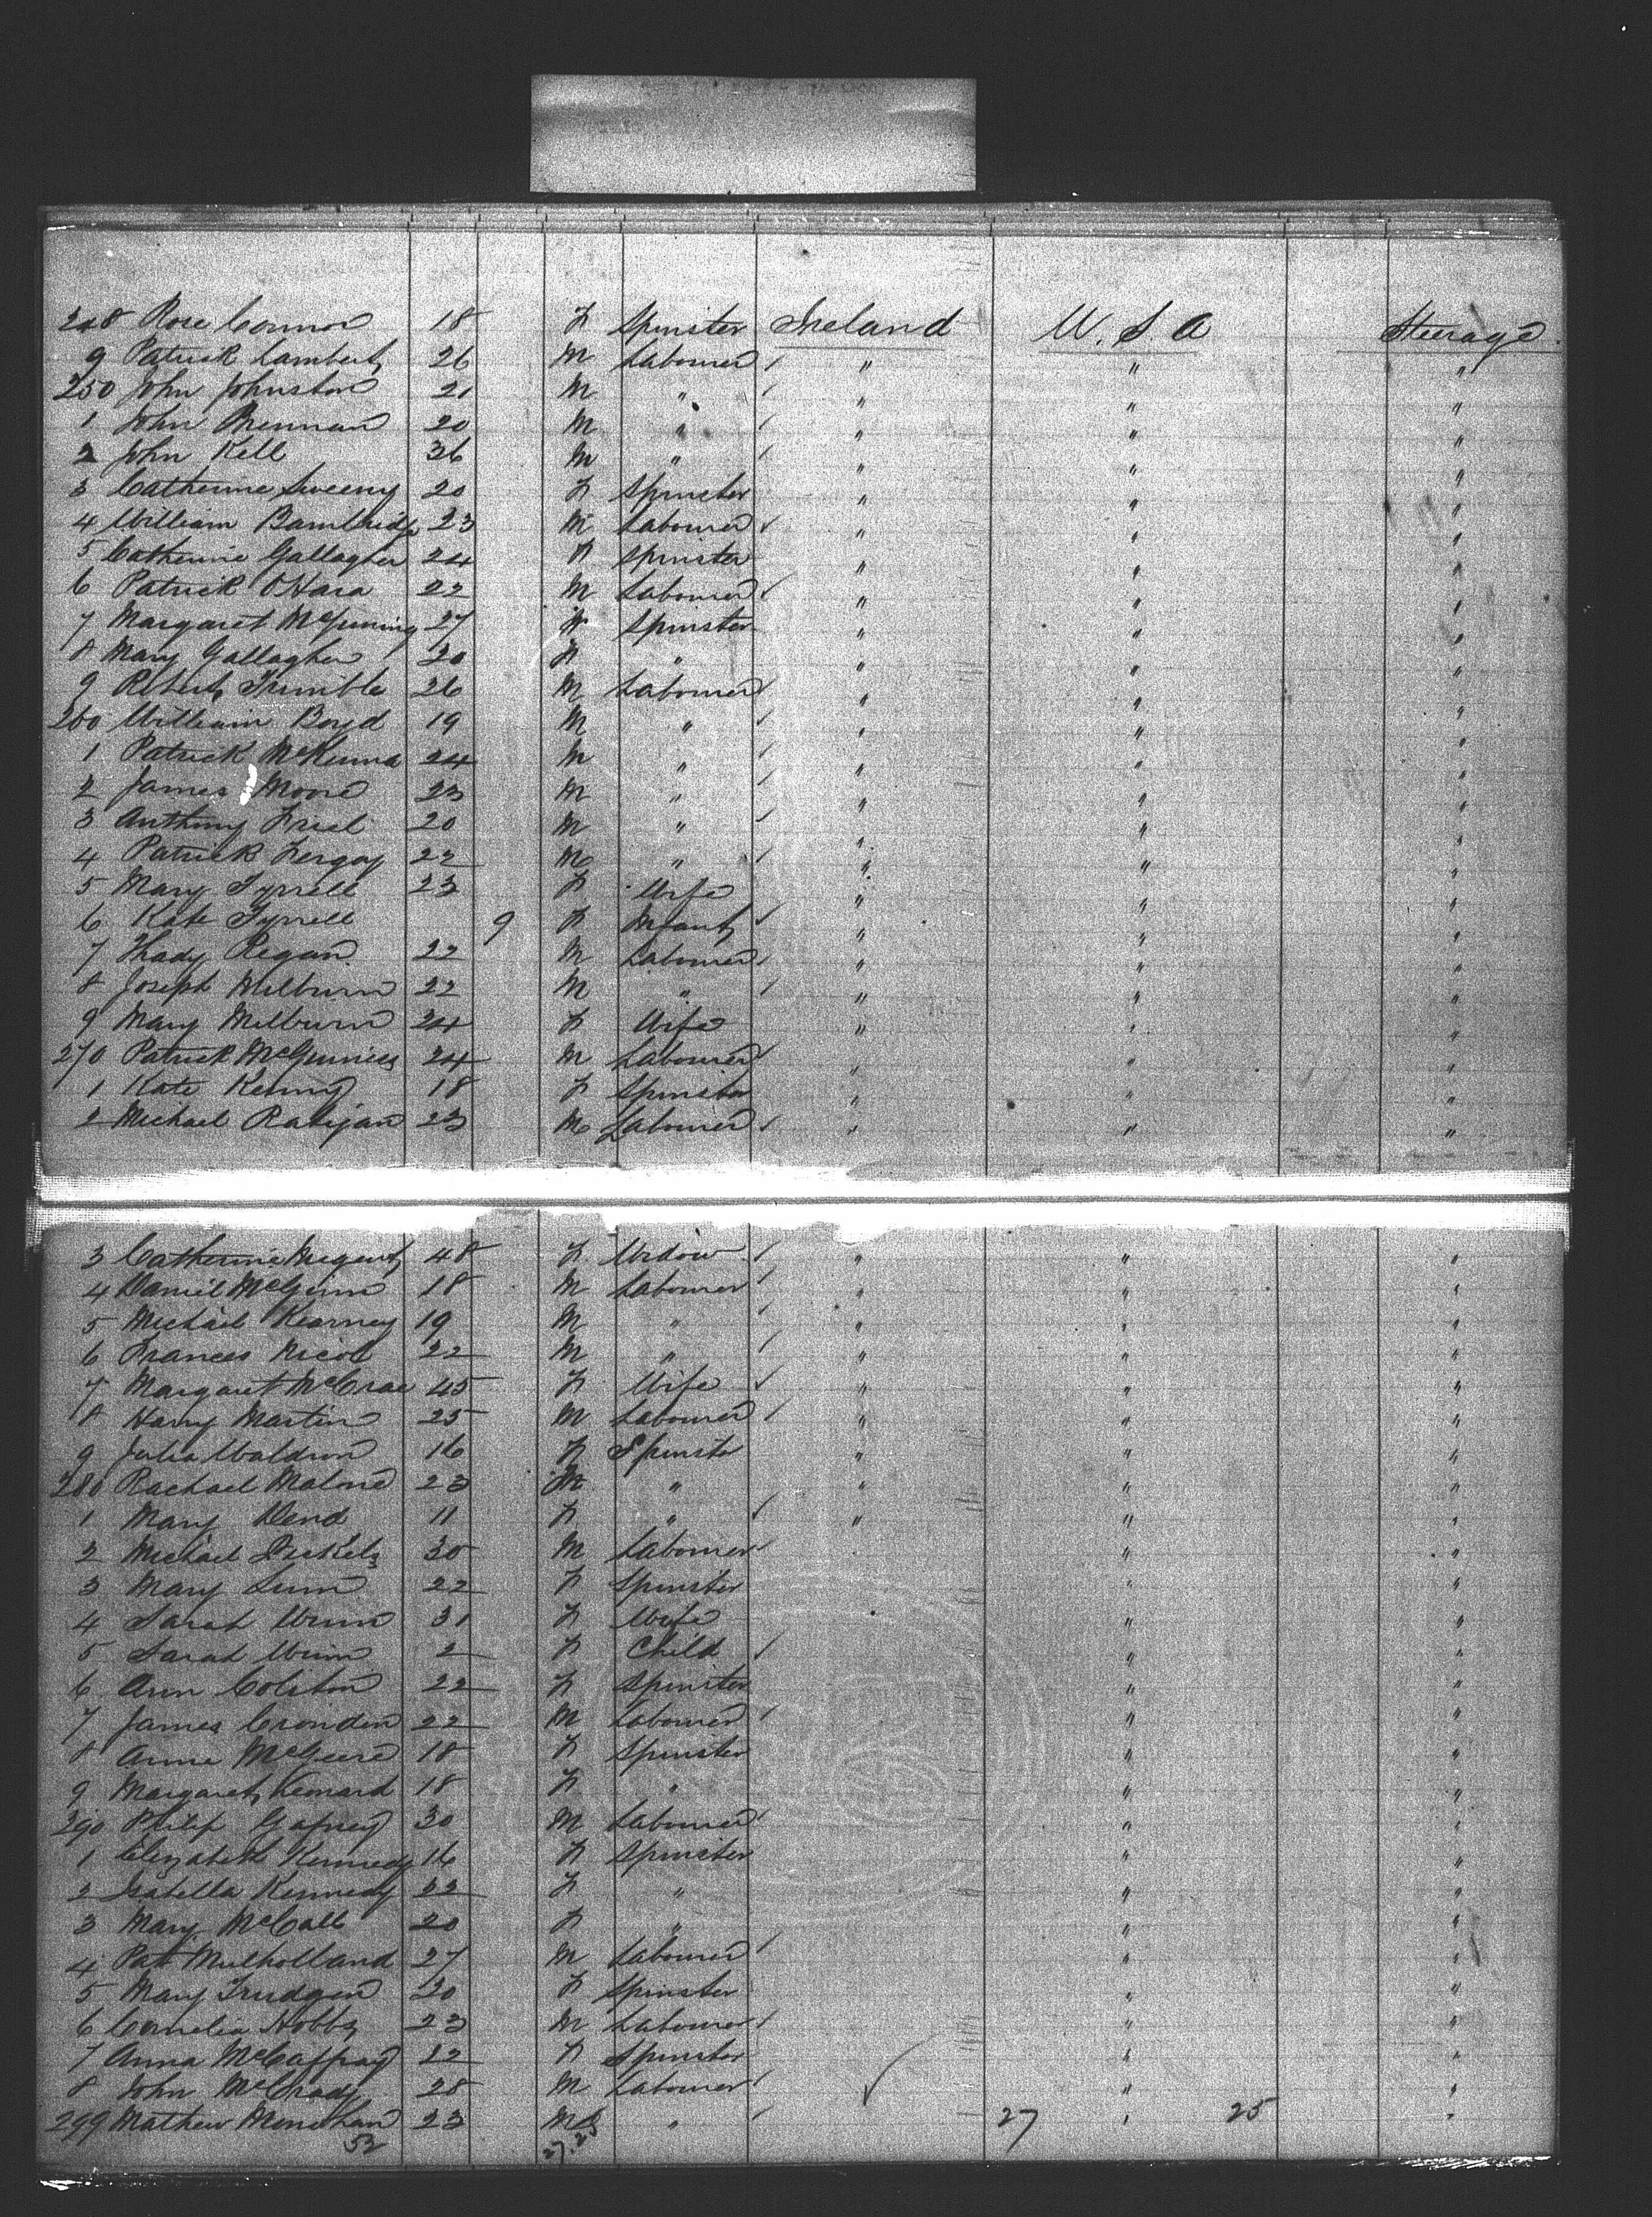 248 Rose Connor 18 F Spinster Ireland U.S.A Steerage
9 Patrick Lambert 26 M Labourer " " "
250 John Johnston 21 M " " " "
1 John Brennan 20 M " " " "
2 John Kell 36 M " " " "
3 Catherine Sweeny 20 F Spinster " " "
4 William 23 M Labourer " " "
5 Catherine Gallagher 24 F Spinster " " "
6 Patrick OHara 22 M Labourer " " "
7 Margaret 27 F Spinster " " "
8 Mary Gallagher 20 F " " " "
9 Robert Trimble 26 M Labourer " " "
260 William Boyd 19 M " " " "
1 Patrick McKenna 24 M " " " "
2 James Moore 23 M " " " "
3 Anthony Friel 20 M " " " "
4 Patrick 22 M " " " "
5 Mary Tyrrell 23 F Wife " " "
6 Kate Tyrrell 9 F Infant " " "
7 Thady Regan 22 M Labourer " " "
8 Joseph Milburn 22 M " " " "
9 Mary Milburn 24 F Wife " " "
270 Patrick McGuiness 24 M Labourer " " "
1 Kate Kenny 18 F Spinster " " "
2 Michael Ratigan 23 M Labourer " " "
3 Catherine 48 F Widow " " "
4 Daniel McGinn 18 M Labourer " " "
5 Michael Kearney 19 M " " " "
6 Frances Nicol 22 M " " " "
7 Margaret McCrae 45 F Wife " " "
8 Harry Martin 25 M Labourer " " "
9 Julia Waldron 16 F Spinster " " "
280 Rachael Malone 23 " " " "
1 Mary 11 F " " " "
2 Michael 30 M Labourer " "
3 Mary 22 F Spinster " "
4 Sarah Winn 31 F Wife " "
5 Sarah Winn 2 F Child " "
6 Ann 22 F Spinster " "
7 James 22 M Labourer " "
8 Anne 18 F Spinster " "
9 Margaret 18 F " " "
290 Philip Gafney 30 M Labourer " "
1 Elizabeth Kennedy 16 F Spinster " "
2 Isabella Kennedy 22 F " " "
3 Mary McCall 20 F " " "
4 Pat Mulholland 27 M Labourer " "
5 Mary Trudgen 20 F Spinster " "
6 Cornelia Hobbs 23 M Labourer " "
7 Anna McCaffray 22 F Spinster " "
8 John McGrady 28 M Labourer " "
299 Mathew Monahan 23 M " 27 " 25 "
52 27.25